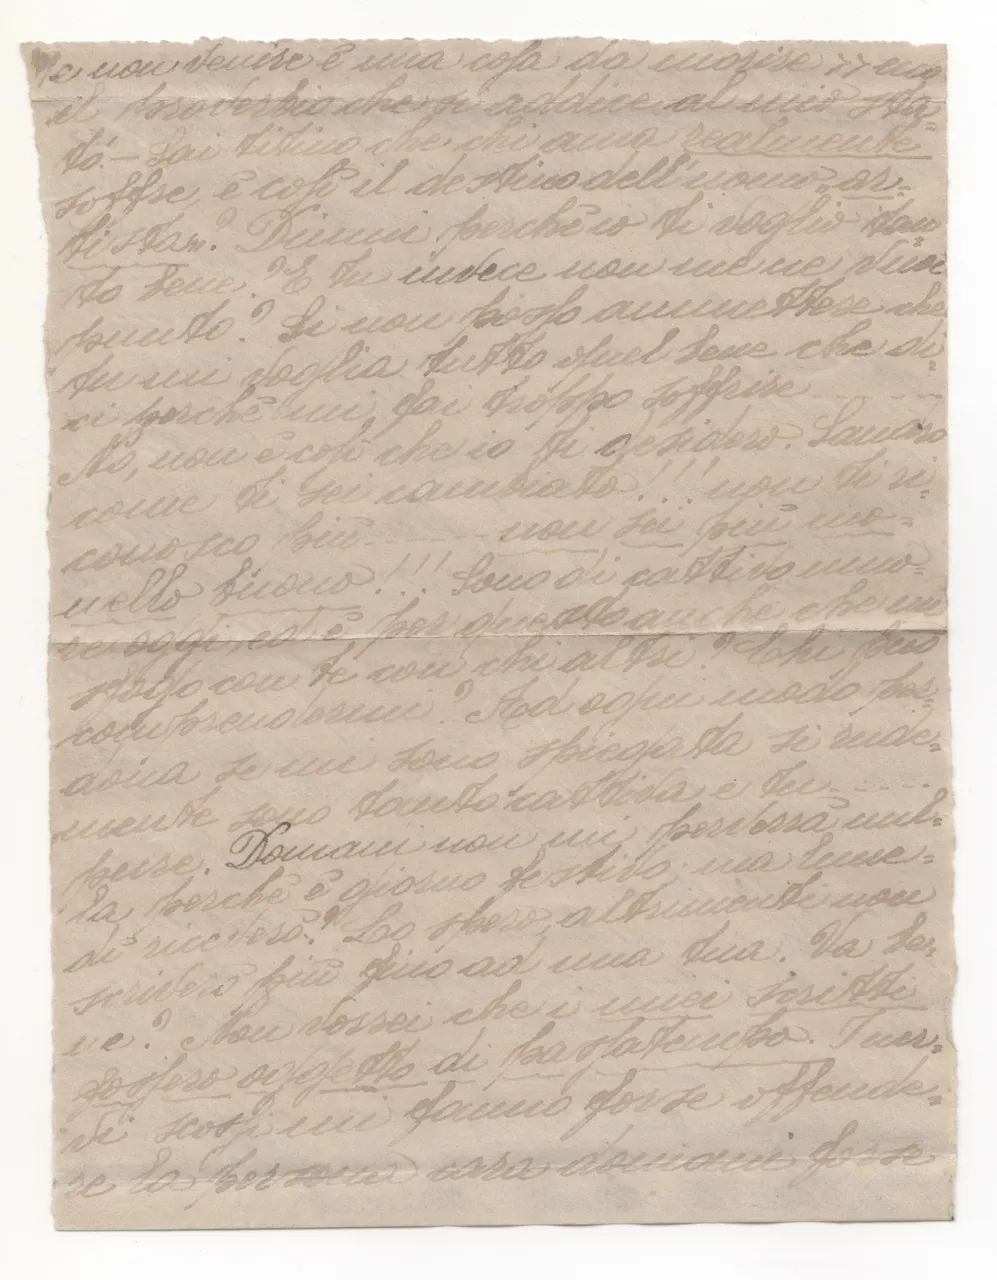 e non venire è una cosa da morire >> ecco
il proverbio che si addice al mio sta=
to – Sai titino che chi ama realmente
soffre, è così il destino dell'uomo "ar=
tista". Dimmi perchè io ti voglio tan
to bene? E tu invece non me ne vuoi
punto? Si non posso ammettere che
tu mi voglia tutto quel bene che di=
ci perchè mi fai troppo soffrire - - - - -
No, non è così che io ti desidero. Sandro
come ti sei cambiato!!! non ti ri=
conosco più - - - - non sei più mo=
nello buono!!! Sono di cattivo umo=
re oggi ed è per questo anche che mi
sfogo con te con chi altri? Chi può
comprendermi? Ad ogni modo per=
dona se mi sono spiegata si rude=
mente sono tanto cattiva e tu - - - - -
pure. Domani non mi perverrà nul=
la perchè è giorno festivo, ma lune=
dì riceverò? Lo spero, altrimenti non
scriverò più fino ad una tua. Va be=
ne? Non vorrei che i miei scritti
fossero oggetto di passatempo. I ner=
vi scossi mi fanno forse offende=
re la persona cara domani forse